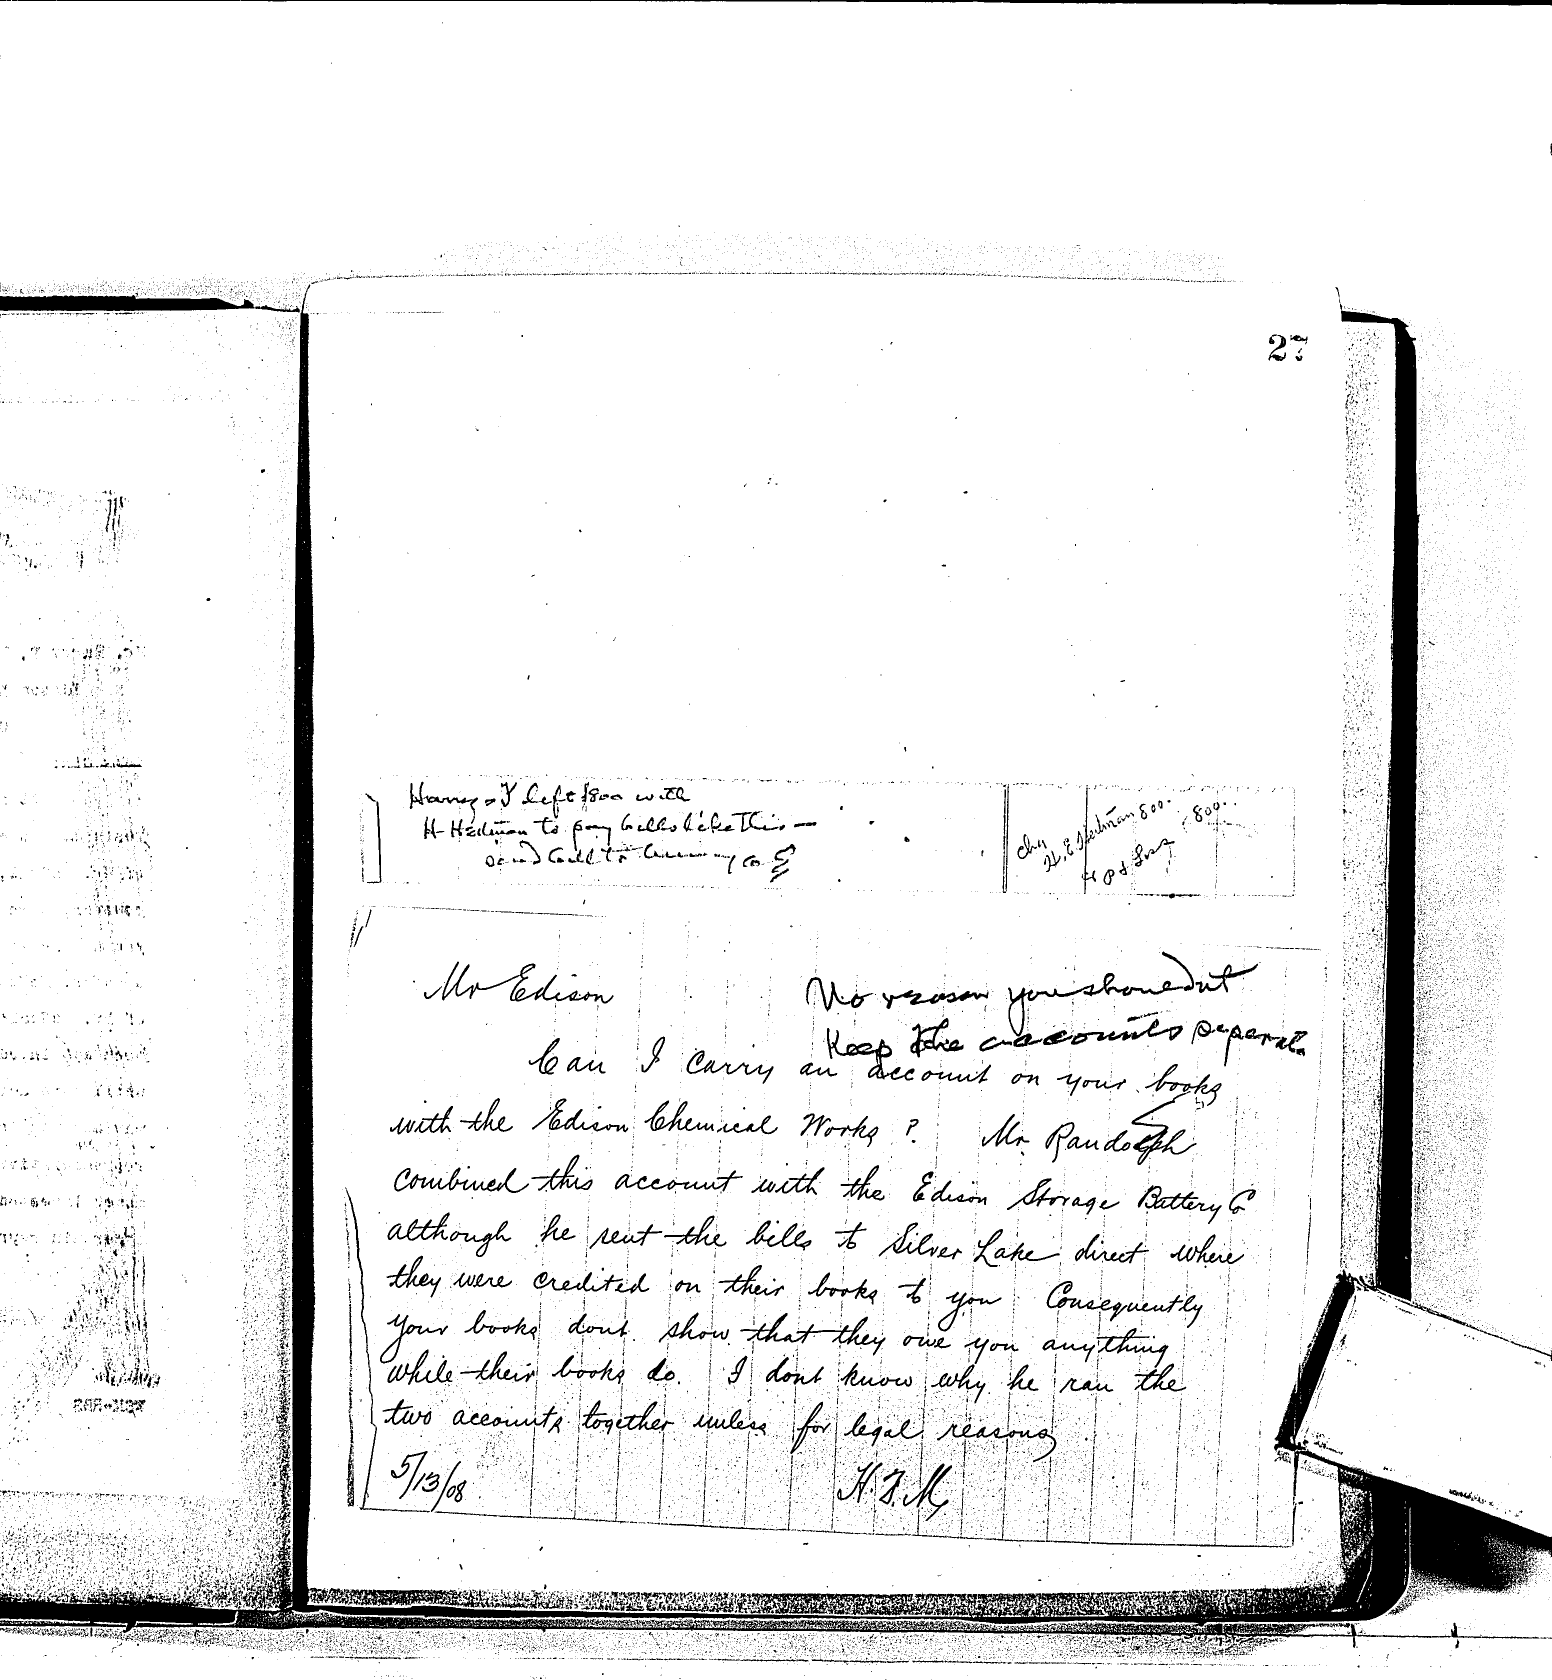 27
Harry - I left $800 with
H Hedman to pay bills like this —
send bill to Co E
Chg
H. E. Hedman 800..
P & Loss 800..
Mr Edison
No reason you shouldnt
Keep the accounts seperate
E
Can I carry an account on your books
with the Edison Chemical Works? Mr. Randolph
combined this account with the Edison Storage Battery Co
although he sent the bills to Silver Lake direct where
they were credited on their books to you Consequently
your books dont show that they owe you anything
while their books do. I dont know why he ran the
two accounts together unless for legal reasons
5/13/08 H. F. M.